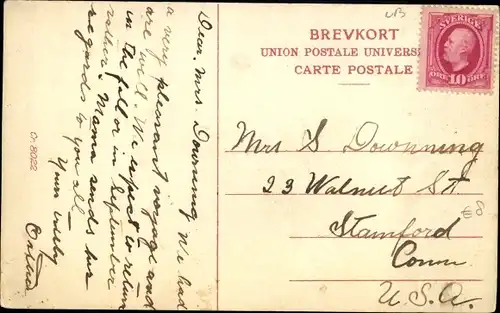 BREVKORT
UNION POSTALE UNIVERS
CARTE POSTALE
SVERIGE
ÖRE 10 ÖRE
Dear. Mrs. Downing We had
a very pleasant voyage and
are well. We expect to return
in the fall or in September
rather. Mama sends her
regards to you all.
Yours
Mrs S Downing
23 Walnut St.
Stamford
Conn
U.S.A.
€8
8022